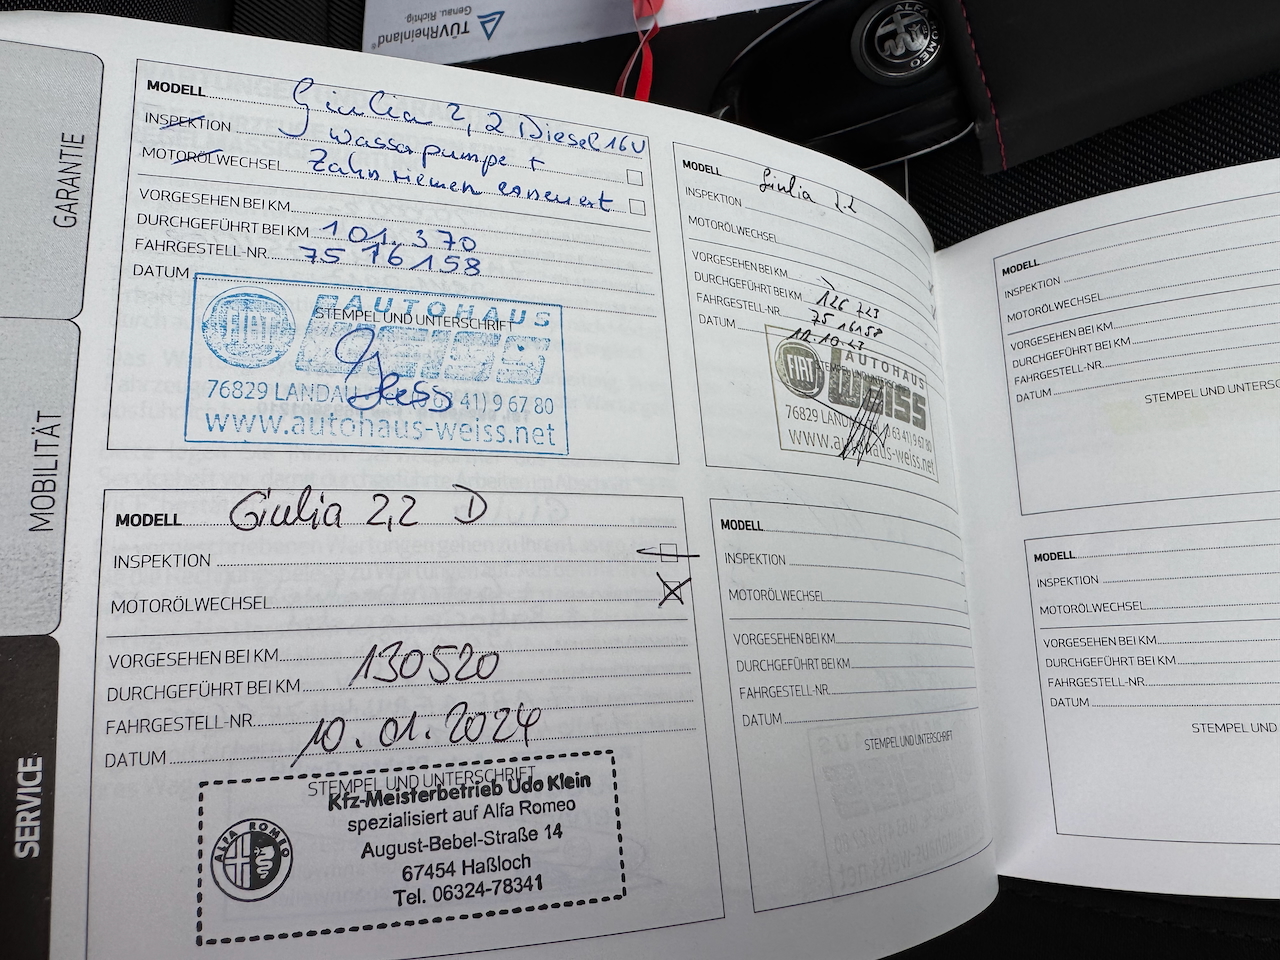 TÜVRheinland®
Genau. Richtig.
ALFA ROMEO
GARANTIE
MOBILITÄT
SERVICE
MODELL Giulia 2,2 Diesel 16V
INSPEKTION Wasserpumpe +
MOTORÖLWECHSEL Zahnriemen erneuert
VORGESEHEN BEI KM
DURCHGEFÜHRT BEI KM 101.370
FAHRGESTELL-NR. 7516158
DATUM
AUTOHAUS
STEMPEL UND UNTERSCHRIFT
FIAT WEISS
76829 LANDAU (0 63 41) 9 67 80
www.autohaus-weiss.net
MODELL Giulia 2,2 D
INSPEKTION
MOTORÖLWECHSEL
VORGESEHEN BEI KM
DURCHGEFÜHRT BEI KM 130520
FAHRGESTELL-NR.
DATUM 10.01.2024
STEMPEL UND UNTERSCHRIFT
Kfz-Meisterbetrieb Udo Klein
spezialisiert auf Alfa Romeo
August-Bebel-Straße 14
67454 Haßloch
Tel. 06324-78341
ALFA ROMEO
MODELL Giulia 2.2
INSPEKTION
MOTORÖLWECHSEL
VORGESEHEN BEI KM
DURCHGEFÜHRT BEI KM 126 723
FAHRGESTELL-NR. 7516158
DATUM
AUTOHAUS
STEMPEL UND UNTERSCHRIFT
FIAT WEISS
76829 LANDAU (0 63 41) 9 67 80
www.autohaus-weiss.net
MODELL
INSPEKTION
MOTORÖLWECHSEL
VORGESEHEN BEI KM
DURCHGEFÜHRT BEI KM
FAHRGESTELL-NR.
DATUM
STEMPEL UND UNTERSCHRIFT
MODELL
INSPEKTION
MOTORÖLWECHSEL
VORGESEHEN BEI KM
DURCHGEFÜHRT BEI KM
FAHRGESTELL-NR.
DATUM
STEMPEL UND UNTERSC
MODELL
INSPEKTION
MOTORÖLWECHSEL
VORGESEHEN BEI KM
DURCHGEFÜHRT BEI KM
FAHRGESTELL-NR.
DATUM
STEMPEL UND